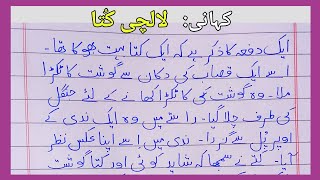 کہانی: لالچی کُتا
ایک دفعہ کا ذکر ہے کہ ایک کتا بہت بھوکا تھا۔
اسے ایک قصاب کی دکان سے گوشت کا ٹکڑا
ملا۔ وہ گوشت کا ٹکڑا کھانے کے لئے جنگل
کی طرف چلا گیا۔ راستہ میں وہ ایک ندی کے
اوپر پُل سے گزرا۔ ندی میں اسے اپنا عکس نظر
آیا۔ کتے نے سمجھا کہ شاید کوئی اور کتا گوشت